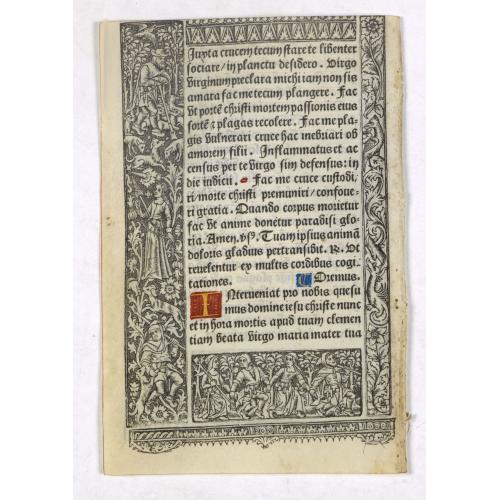 Juxta crucem tecum stare te libenter
sociare/in planctu desidero. Virgo
virginum preclara michi iam non sis
amara fac me tecum plangere. Fac
vt porte christi mortem passionis eius
forte z plagas recolere. Fac me pla-
gis vulnerari cruce hac inebriari ob
amorem filii. Inflammatus et ac
census per te virgo sim defensus: in
die iudicii. Fac me cruce custodi,
ri/morte christi premuniri/confoue,
ri gratia. Quando corpus morietur
fac vt anime donetur paradisi glo-
ria. Amen. Tuam ipsius animā
doloris gladius pertransibit. R. Vt
reuelentur ex multis cordibus cogi
tationes. Oremus.
INterueniat pro nobis quesu
mus domine iesu christe nunc
et in hora mortis apud tuam clemen
tiam beata virgo maria mater tua